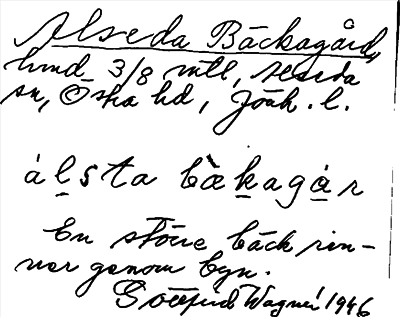 Alseda Bäckagård,
hmd 3/8 mtl, Alseda
sn, Östra hd, Jönk. l.
álsta bäkagår
En större bäck rin-
ner genom byn.
Gottfrid Wagner 1946